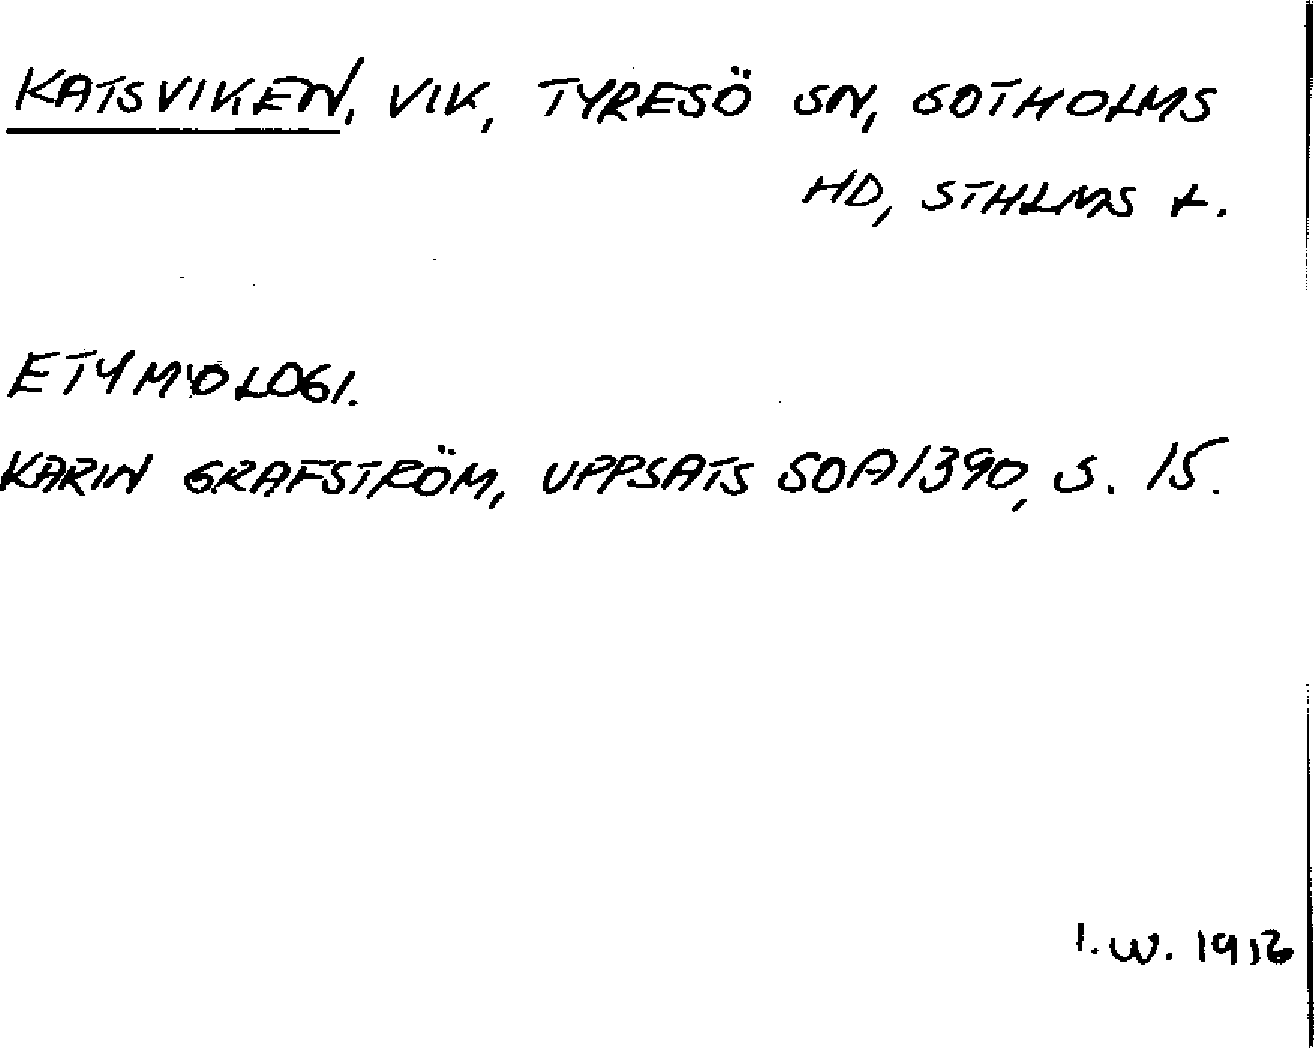 KATSVIKEN, VIK, TYRESÖ SN, SOTHOLMS
HD, STHLMS L.
ETYMOLOGI.
KARIN GRAFSTRÖM, UPPSATS SOA1390, S. 15.
I.W.